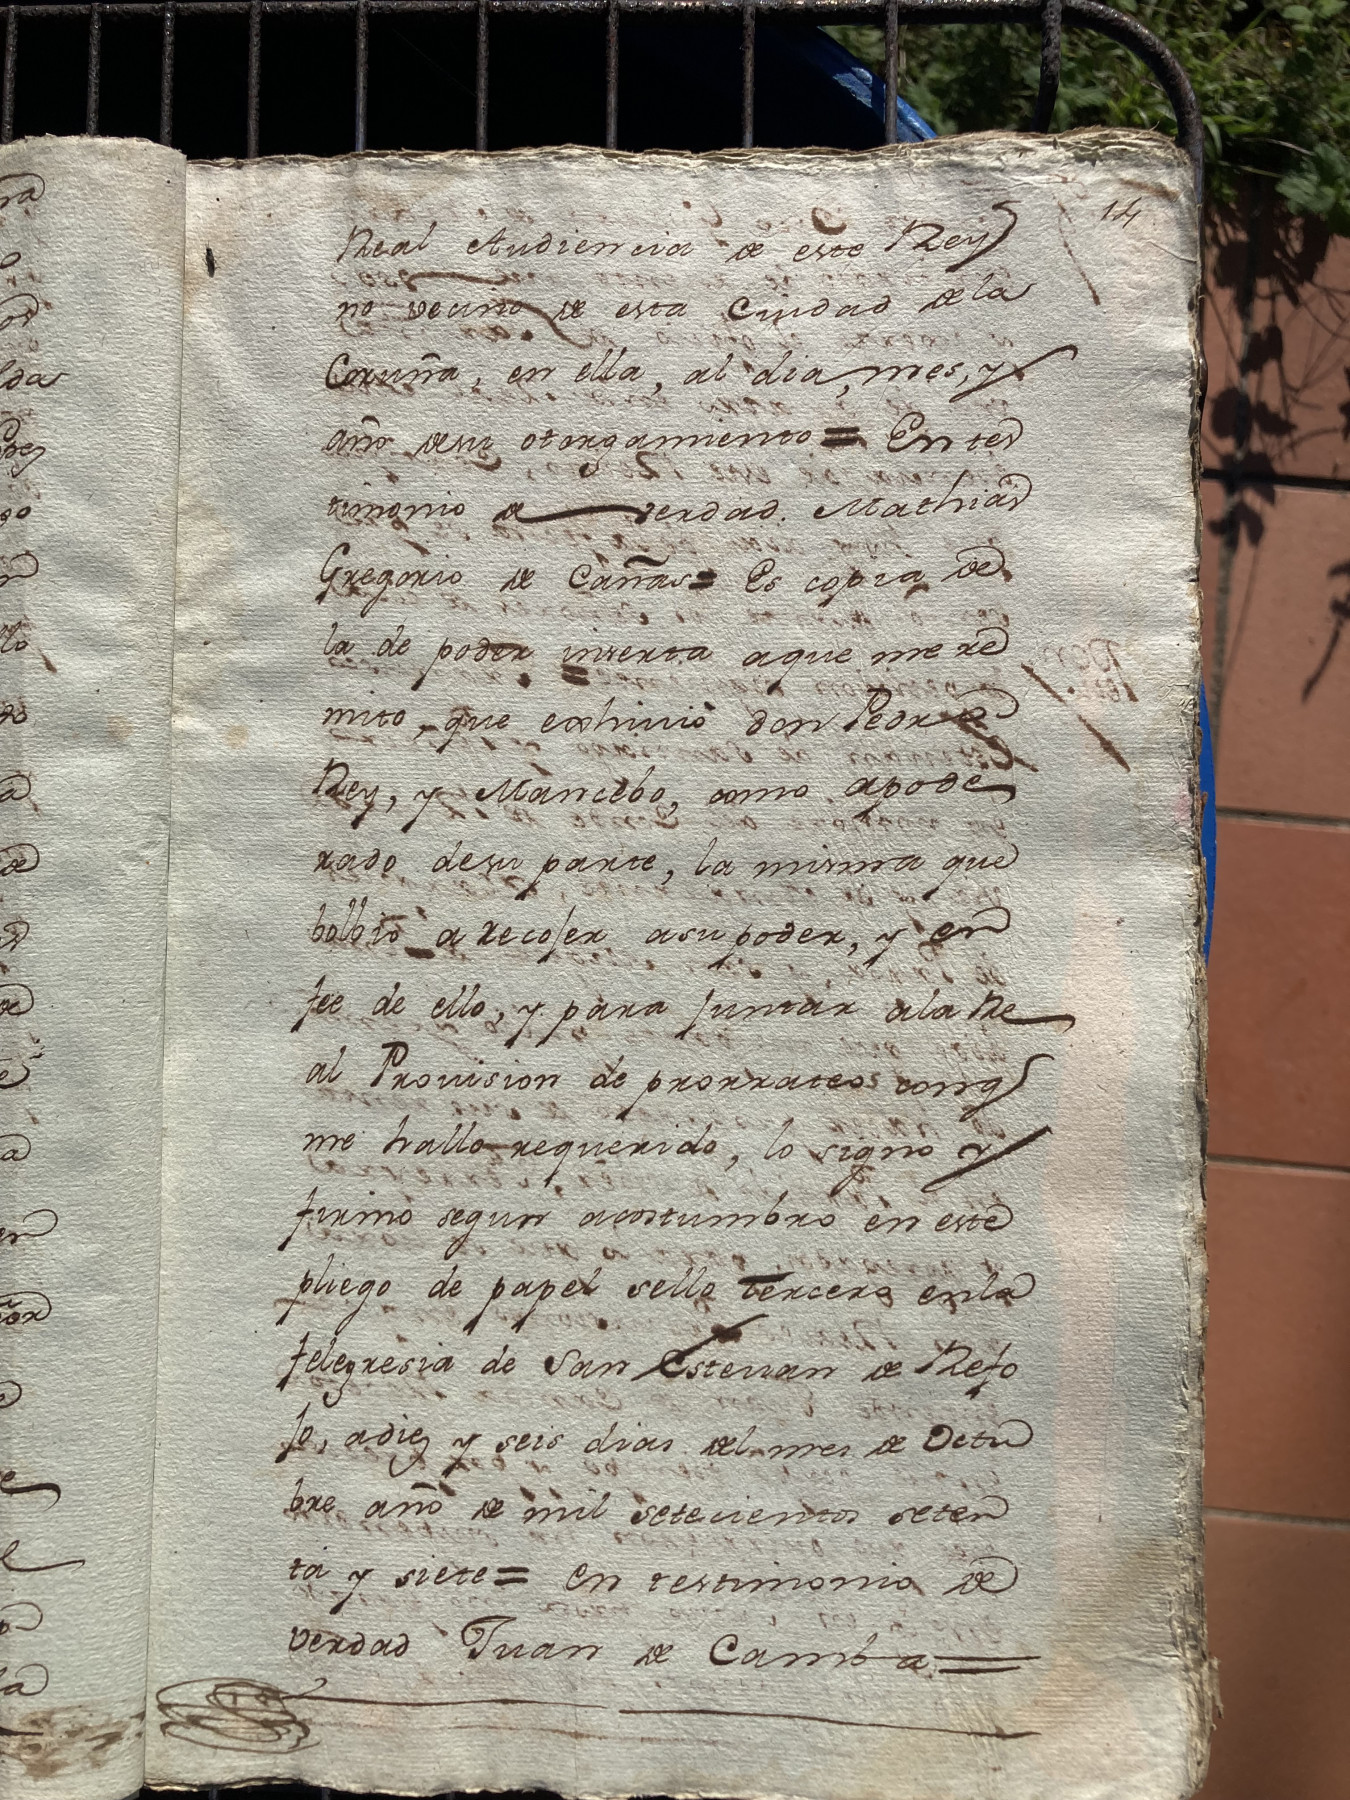 14
Real Audiencia de este Rey
no vecino de esta Ciudad de la
Coruña, en ella, al dia, mes, y
año desu otorgamiento = En tes
timonio de verdad. Mathias
Gregorio de Cañas = Es copia de
la de poder inserta aque me re
mito, que exhiuió don Pedro
Rey, y Mancebo, como apode
rado desu parte, la misma que
bolbió a recojer asu poder, y en
fee de ello, y para juntar ala Re
al Prouision de prorrateos conq
me hallo requerido, lo signo y
firmo segun acostumbro en este
pliego de papel sello tercero enla
felegresia de San Esteuan de Refo
jo, adiez y seis dias del mes de Octu
bre año de mil setecientos seten
ta y siete = En testimonio de
verdad Juan de Camba =